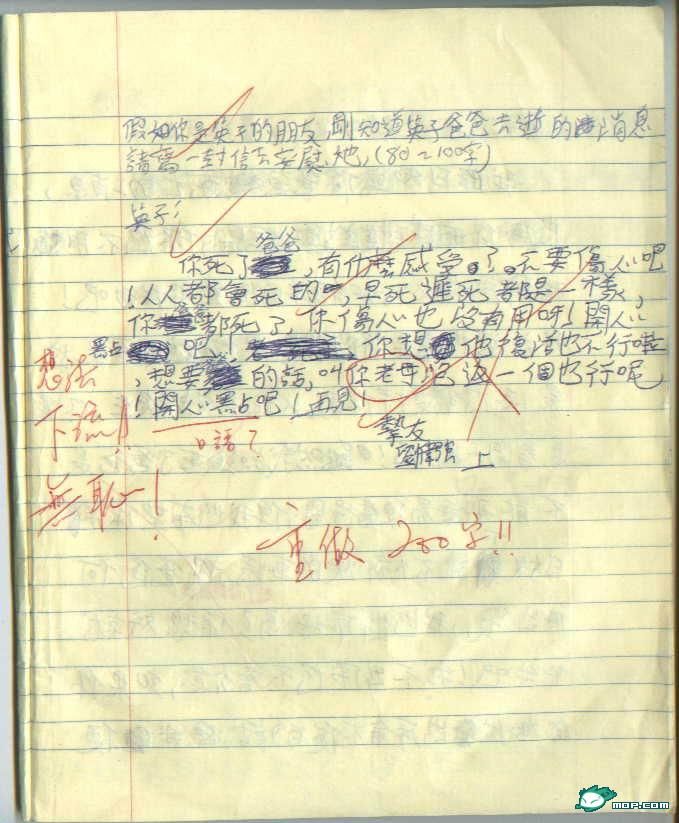 假如你是英子的朋友,剛知道英子爸爸去逝的消息
請寫一封信去安慰她,(80~100字)
英子:
爸爸
你死了,有什麼感受。了。不要傷心吧
!人人都會死的,早死遲死都是一樣,
你都死了,你傷心也沒有用呀!開心
點吧,你想他復活也不行啦
,想要的話,叫你老母泡返一個也行呢
!開心點吧!再見!
摯友
上
想法
下流!!
無恥!
口語?
重做 200字!!
MOP.COM